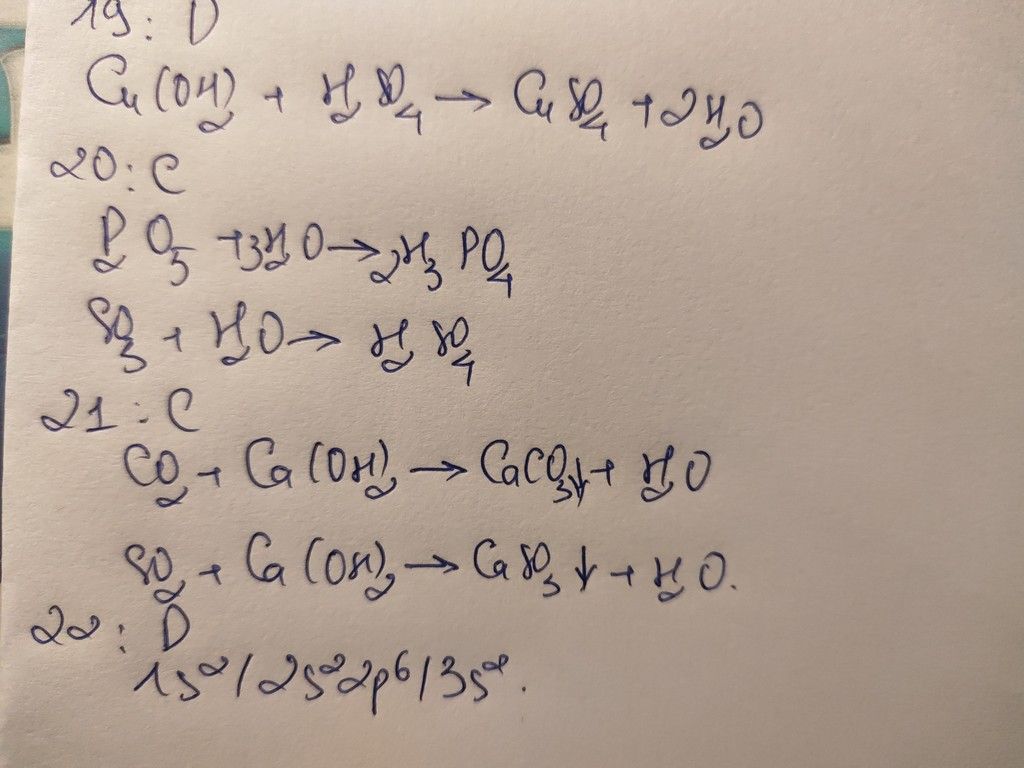 19: D
Cu(OH)₂ + H₂SO₄ → CuSO₄ + 2H₂O
20: C
P₂O₅ + 3H₂O → 2H₃PO₄
SO₃ + H₂O → H₂SO₄
21: C
CO₂ + Ca(OH)₂ → CaCO₃↓ + H₂O
SO₂ + Ca(OH)₂ → CaSO₃↓ + H₂O.
22: D
1s²/2s²2p⁶/3s².